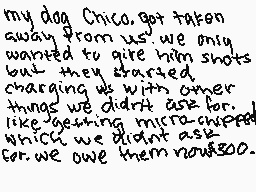 my dog Chico. got taken
away from us. we only
wanted to give him shots
but they started
charging us with other
things we didn't ask for.
like getting micro-chipped
which we didnt ask
for. we owe them now$300.